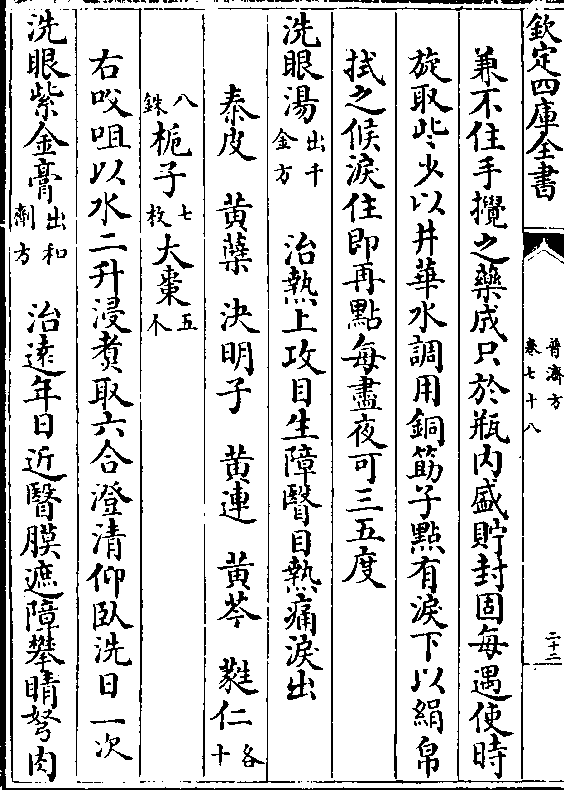 欽定四庫全書
普濟方
卷七十八
二十二
兼不住手攪之藥成只於瓶内盛貯封固每遇使時
旋取些少以井華水調用銅筯子點有淚下以絹帛
拭之候淚住即再點每盡夜可三五度
洗眼湯出千金方 治熱上攻目生障翳目熱痛淚出
秦皮 黄蘗 決明子 黄連 黄芩 蕤仁各十
八銖梔子七枚大棗五个
右㕮咀以水二升浸煑取六合澄清仰臥洗日一次
洗眼紫金膏出和劑方 治逺年日近翳膜遮障攀睛努肉